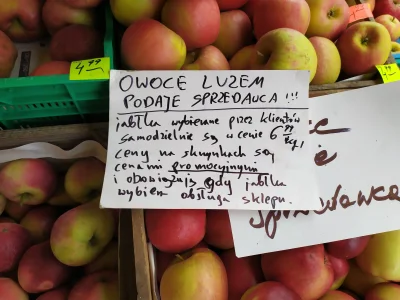 4 99
OWOCE LUZEM
PODAJE SPRZEDAWCA !!!
jabłka wybierane przez klientów
samodzielnie są w cenie 6 99
kg!
ceny na skrzynkach są
cenami promocyjnymi
i obowiązują gdy jabłka
wybiera obsługa sklepu.
4